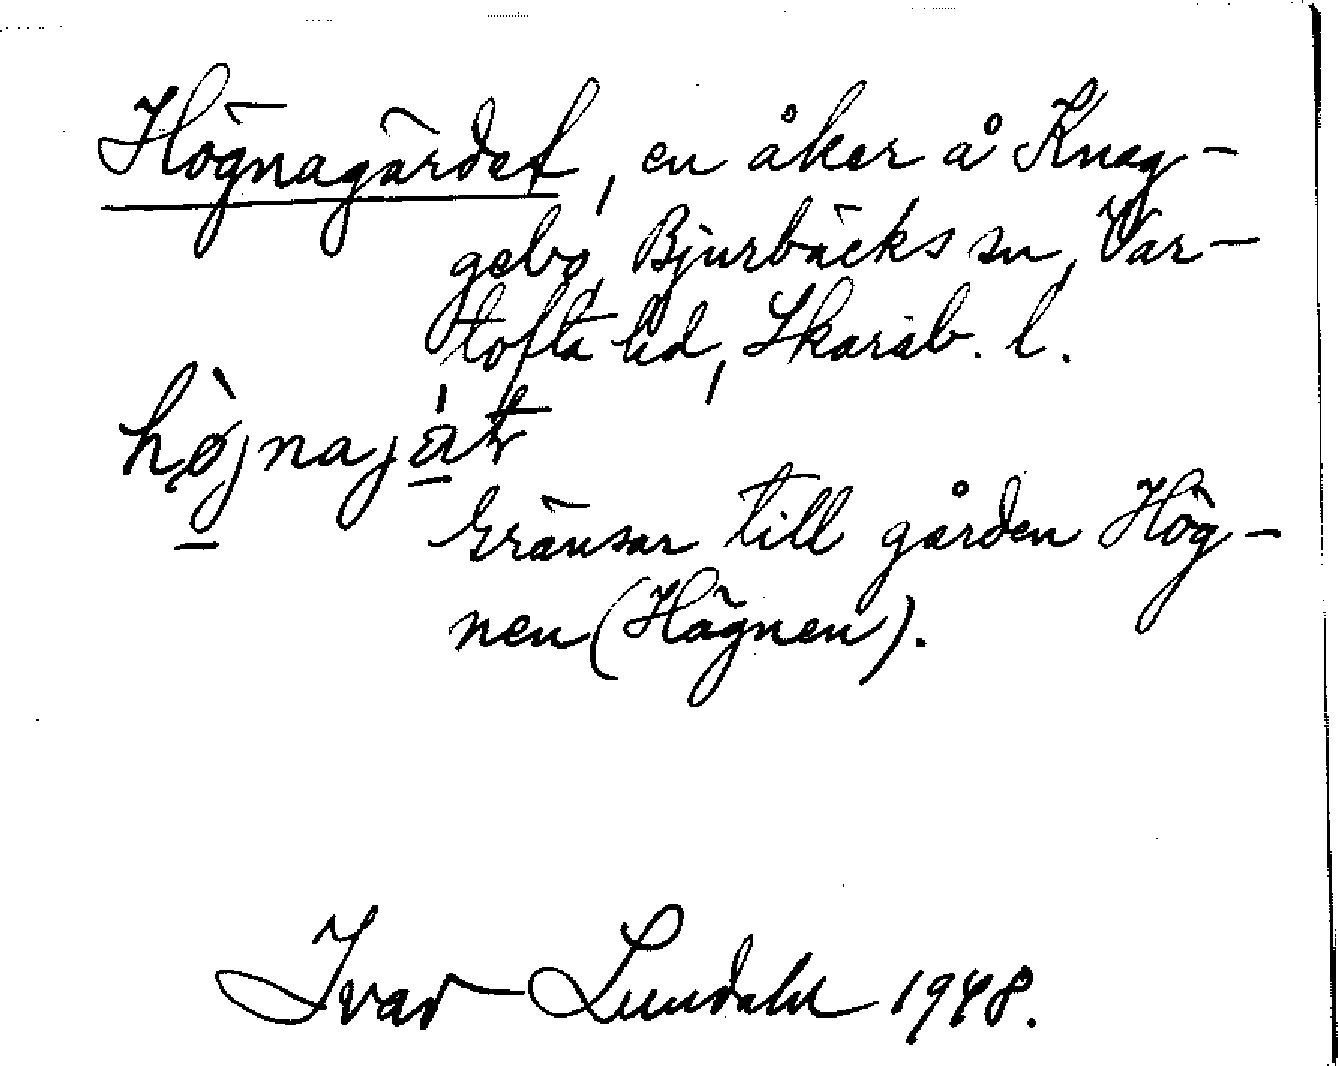 Högnagärdet, en åker å Knag-
gebo, Bjurbäcks sn, Var-
tofta hd, Skarab. l.
Gränsar till gården Hög-
nen (Hägnen).
Ivar Lundahl 1948.